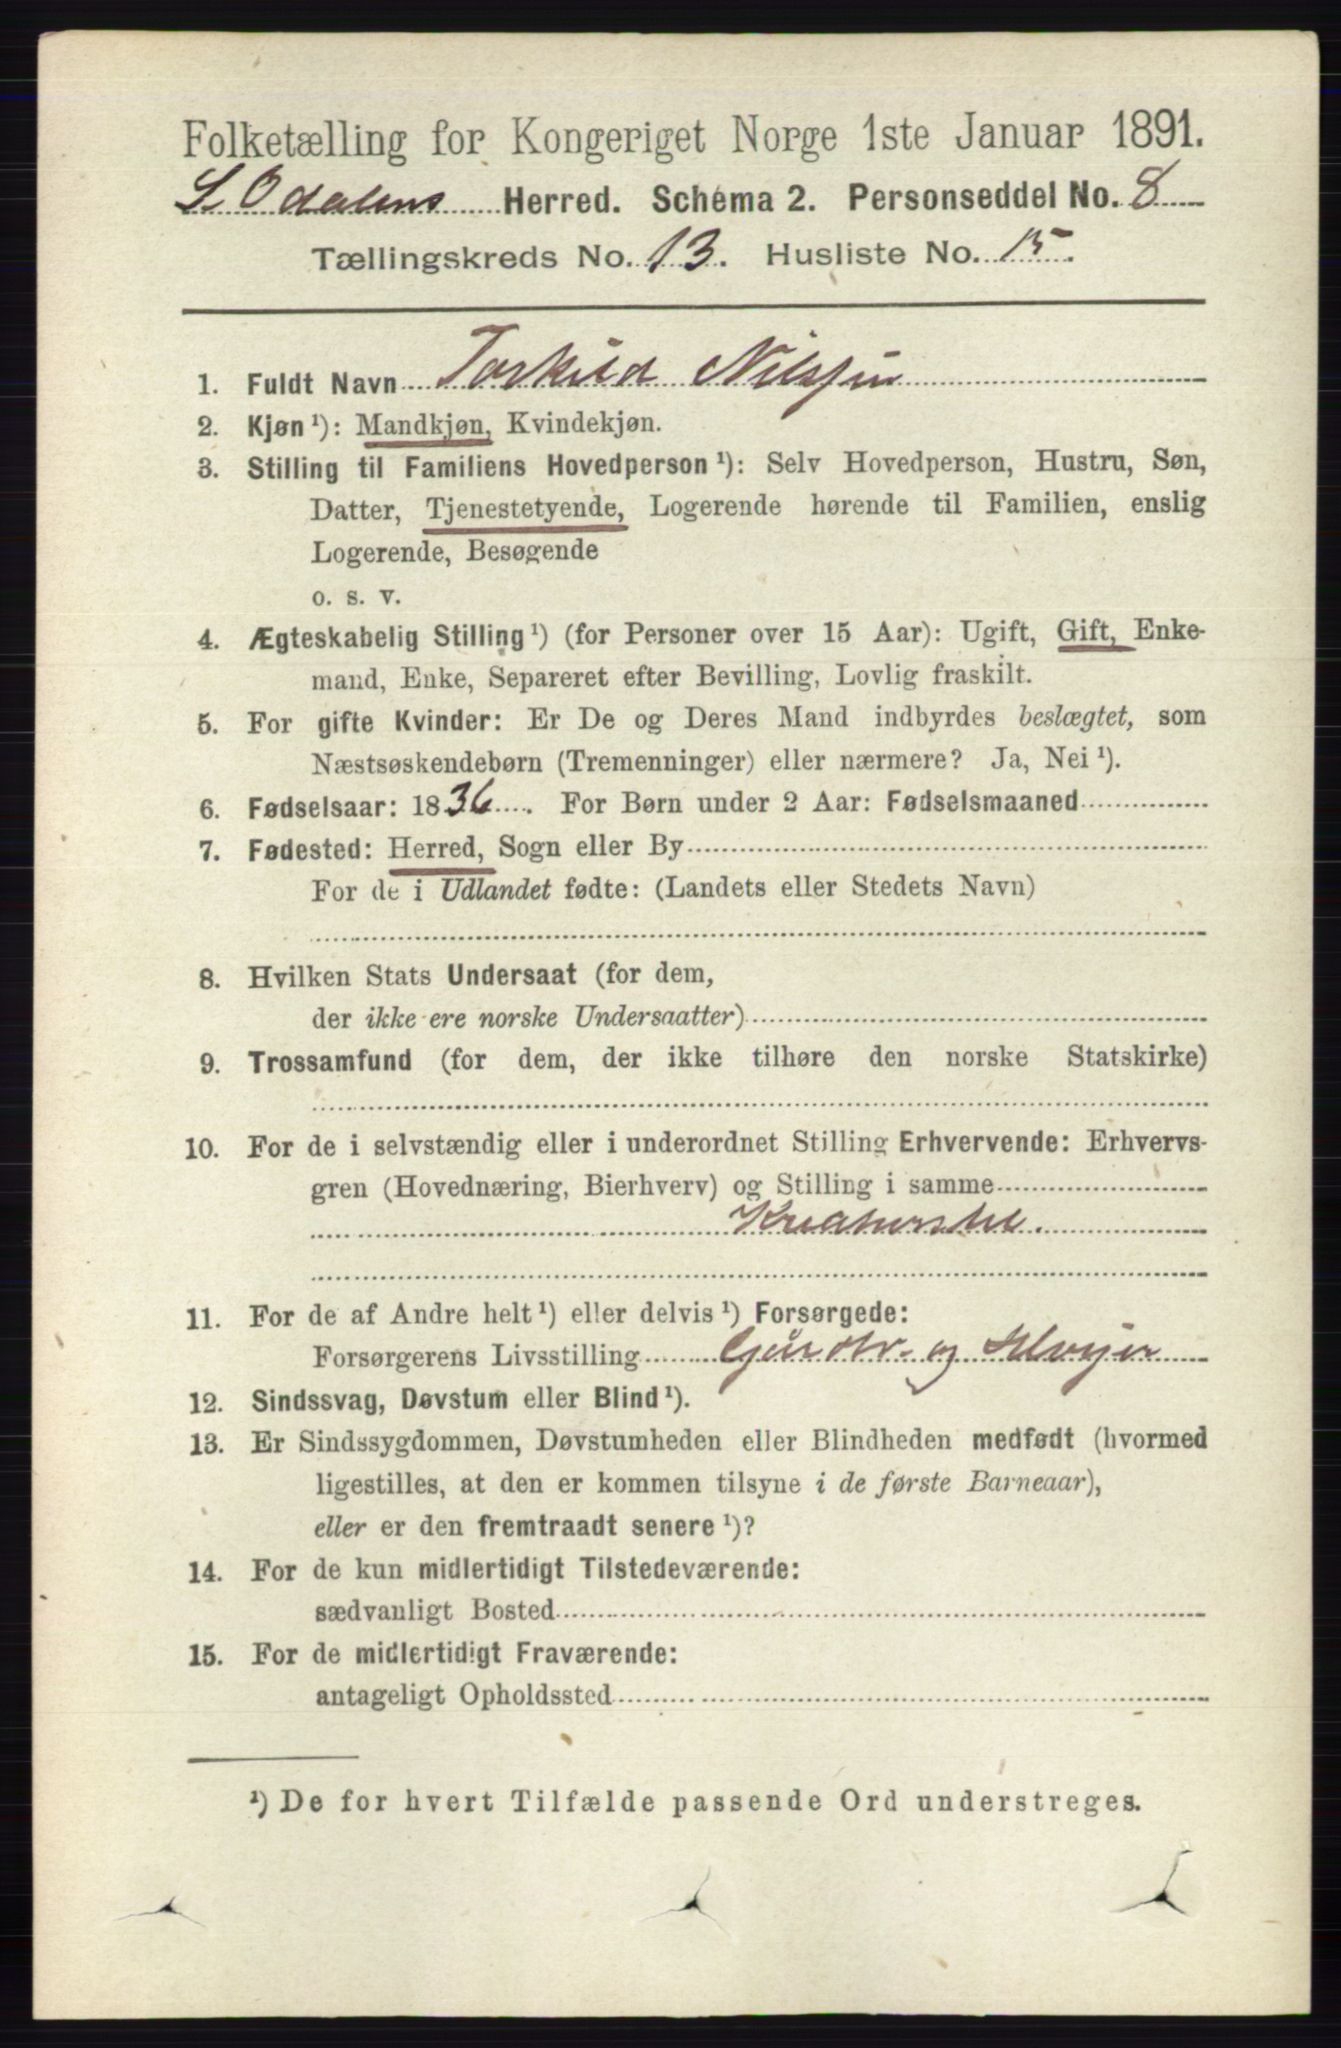 Folketælling for Kongeriget Norge 1ste Januar 1891.
S. Odalens Herred. Schema 2. Personseddel No. 8
Tællingskreds No. 13. Husliste No. 15.
1. Fuldt Navn Torkild Nilssen
2. Kjøn ¹): Mandkjøn, Kvindekjøn.
3. Stilling til Familiens Hovedperson ¹): Selv Hovedperson, Hustru, Søn,
Datter, Tjenestetyende, Logerende hørende til Familien, enslig
Logerende, Besøgende
o. s. v.
4. Ægteskabelig Stilling ¹) (for Personer over 15 Aar): Ugift, Gift, Enke-
mand, Enke, Separeret efter Bevilling, Lovlig fraskilt.
5. For gifte Kvinder: Er De og Deres Mand indbyrdes beslægtet, som
Næstsøskendebørn (Tremenninger) eller nærmere? Ja, Nei ¹).
6. Fødselsaar: 1836. For Børn under 2 Aar: Fødselsmaaned
7. Fødested: Herred, Sogn eller By
For de i Udlandet fødte: (Landets eller Stedets Navn)
8. Hvilken Stats Undersaat (for dem,
der ikke ere norske Undersaatter)
9. Trossamfund (for dem, der ikke tilhøre den norske Statskirke)
10. For de i selvstændig eller i underordnet Stilling Erhvervende: Erhvervs-
gren (Hovednæring, Bierhverv) og Stilling i samme
Kreaturstel.
11. For de af Andre helt ¹) eller delvis ¹) Forsørgede:
Forsørgerens Livsstilling og Selveier
12. Sindssvag, Døvstum eller Blind ¹).
13. Er Sindssygdommen, Døvstumheden eller Blindheden medfødt (hvormed
ligestilles, at den er kommen tilsyne i de første Barneaar),
eller er den fremtraadt senere ¹)?
14. For de kun midlertidigt Tilstedeværende:
sædvanligt Bosted
15. For de midlertidigt Fraværende:
antageligt Opholdssted
¹) De for hvert Tilfælde passende Ord understreges.